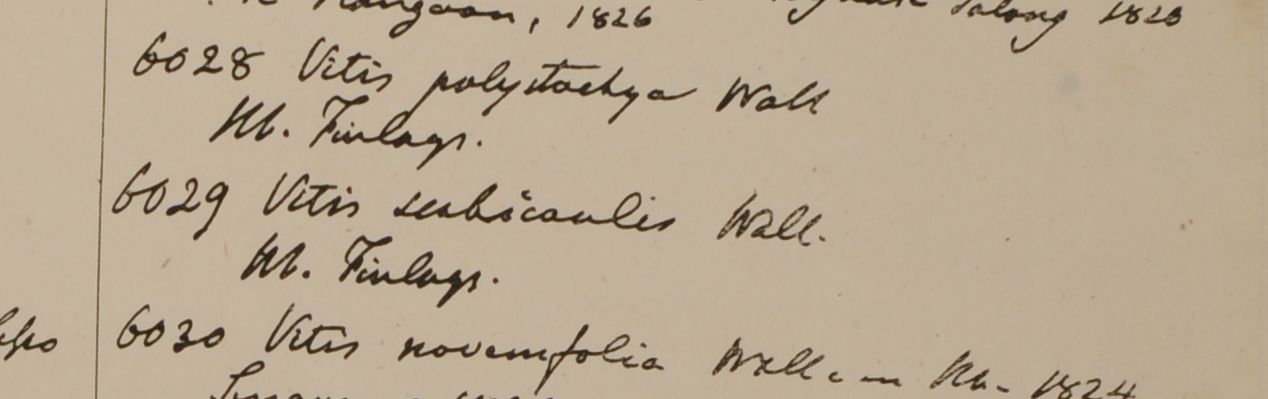 Rangoon, 1826 Salong 1823
6028 Vitis polystachya Wall
Hb. Finlays.
6029 Vitis scabricaulis Wall.
Hb. Finlays.
6030 Vitis novemfolia Wall in Hb. 1824